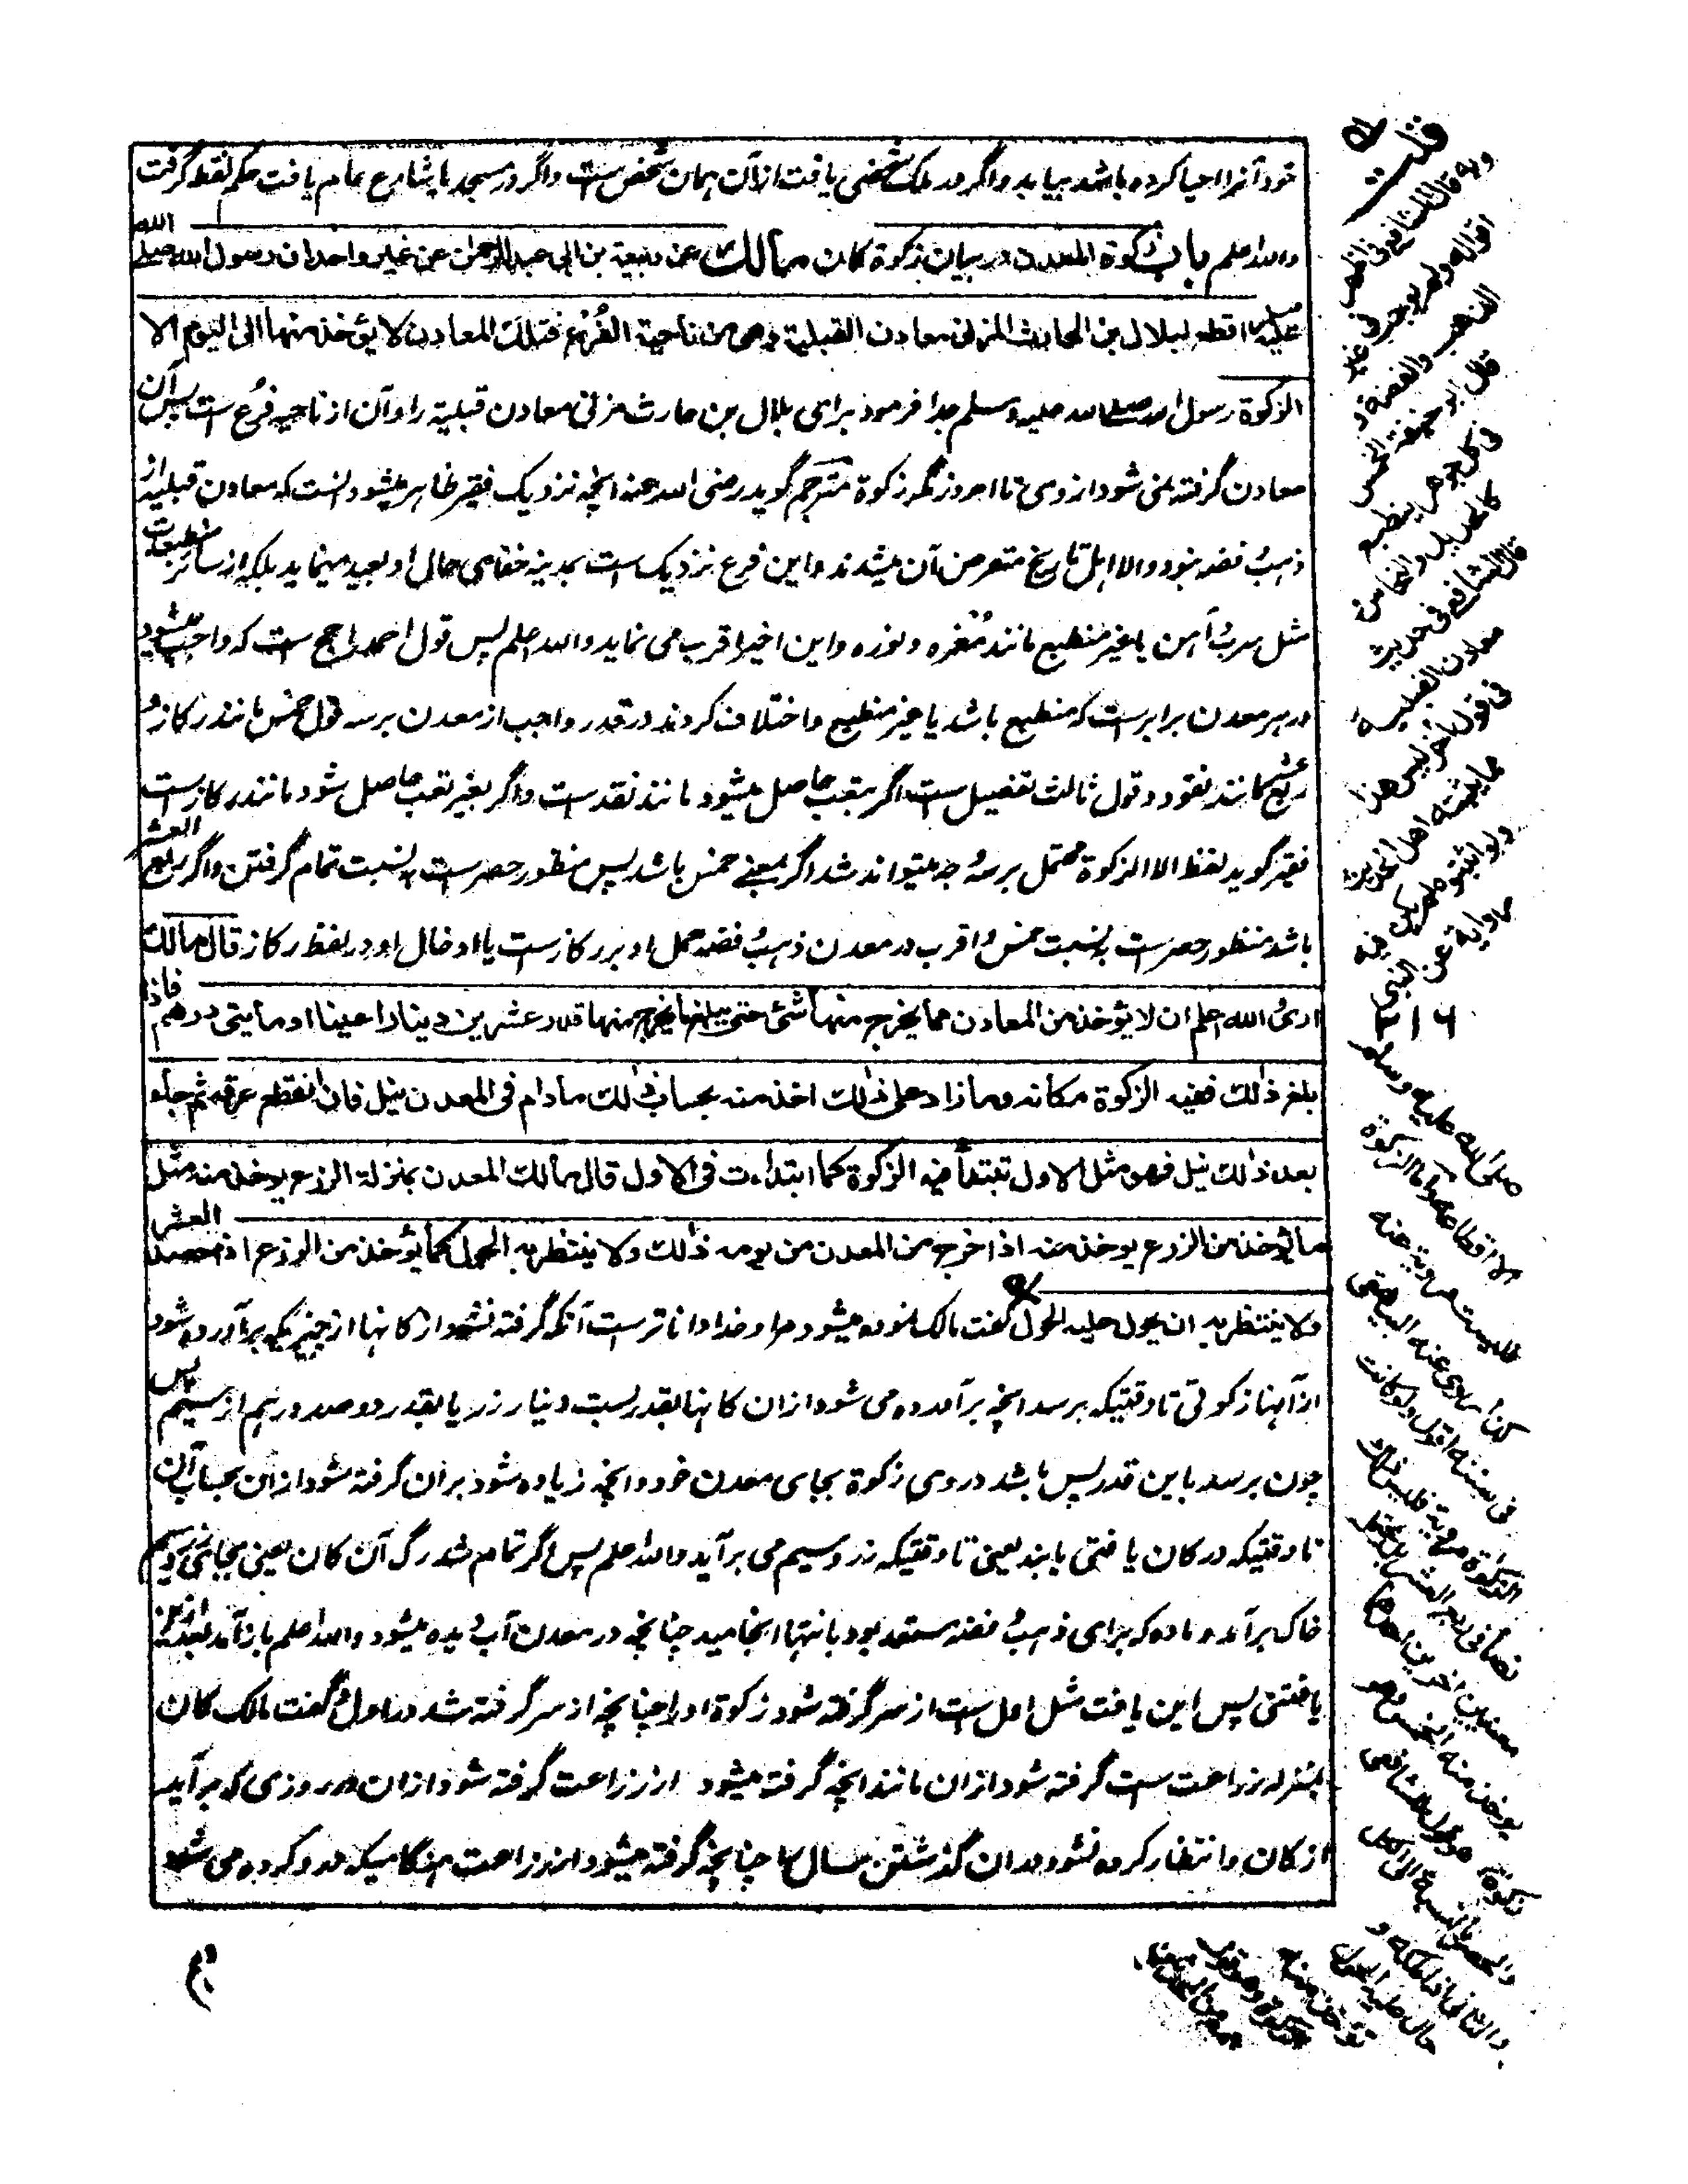 خود آنرا احیا کرده باشد بیابد و اگر در ملک شخصی یافت ازآن همان شخص ست و اگر در مسجد یا شارع عام یافت حکم لقطه گرفت
والله اعلم باب زکوة المعدن در بیان زکوة کان مالك عن ربیعة بن ابی عبد الرحمن عن غیر واحد ان رسول الله صلے الله
علیه وسلم اقطع لبلال بن الحارث المزنی معادن القبلیة وهی من ناحیة الفُرْع فتلك المعادن لا یؤخذ منها الی الیوم الا
الزکوة رسول الله صلے الله علیه وسلم جدا فرمود برای بلال بن حارث مزنی معادن قبلیة را و آن از ناحیه فُرع ست پس آن
معادن گرفته نمی شود ازوی تا امروز مگر زکوة مترجم گوید رضی الله عنه انچه نزدیک فقیر ظاهر میشود انست که معادن قبلیه از
ذهب و فضه نبود و الا اهل تاریخ متعرض آن میشدند و این فرع نزدیک ست بمدینه خفای حال او بعید مینماید بلکه از سائر منطبعات
مثل سرب و آهن یا غیر منطبع مانند مُغره و نوره و این اخیر اقرب می نماید والله اعلم پس قول احمد راجح ست که واجب میشود
در هر معدن برابرست که منطبع باشد یا غیر منطبع و اختلاف کردند در قدر واجب از معدن برسه قول خمس مانند رکاز و
ربع عشر مانند نقود و قول ثالث تفصیل ست اگر بتعب حاصل میشود مانند نقدست و اگر بغیر تعب حاصل شود مانند رکازست
فقیر گوید لفظ الا الزکوة محتمل برسه وجه میتواند شد اگر بمعنے خمس باشد پس منظور حصرست به نسبت تمام گرفتن و اگر ربع العشر
باشد منظور حصرست به نسبت خمس و اقرب در معدن ذهب و فضه حمل او بر رکازست یا ادخال او در لفظ رکاز قال مالك
اری والله اعلم ان لا یؤخذ من المعادن مما یخرج منها شئ حتی یبلغ ما یخرج منها قدر عشرین دینارا عینا او مأیتی درهم فاذا
بلغ ذلك ففیه الزکوة مکانه وما زاد علی ذلك اخذ منه بحساب ذلك ما دام فی المعدن نیل فان انقطع عرقه ثم جاء
بعد ذلك نیل فهو مثل الاول تبتدأ فیه الزکوة کما ابتداءت فی الاول قال مالك المعدن بمنزلة الزرع یوخذ منه مثل
ما یوخذ من الزرع یوخذ منه اذا خرج من المعدن من یومه ذلك ولا ینتظر به الحول کما یؤخذ من الزرع اذا حصد العشر
ولا ینتظر به ان یحول علیه الحول گفت مالک نموده میشود مرا و خدا داناترست آنکه گرفته نشود از کانها از چیزیکه برآورده شود
از آنها زکوتی تا وقتیکه برسد انچه برآورده می شود ازان کانها بقدر بست دینار زر یا بقدر دو صد درهم از سیم پس
چون برسد باین قدر پس باشد در وی زکوة بجای معدن خود و انچه زیاده شود بران گرفته شود ازان بحساب آن
تا وقتیکه در کان یافتی یابند یعنی تا وقتیکه زر و سیم می برآید والله اعلم پس اگر تمام شد رگ آن کان یعنی بجای زر و سیم
خاک برآمد و ماده که برای ذهب و فضه مستعد بود بانتها انجامید چنانچه در معدن آب دیده میشود والله اعلم باز آمد بعد ازین
یافتنی پس این یافت مثل اول ست از سر گرفته شود زکوة او را چنانچه از سر گرفته شد در اول و گفت مالک کان
بمنزله زراعت ست گرفته شود ازان مانند انچه گرفته میشود از زراعت گرفته شود ازان در روزی که برآید
از کان و انتظار کرده نشود دران گذشتن سال را چنانچه گرفته میشود از زراعت هنگامیکه درو کرده می شود
قلت
وبه قال الشافعی فی اظهر
اقواله ولم یوجب فی غیر
الذهب والفضة و
قال ابو حنیفة الخمس
فی کل جوهر ینطبع
کالحدید والنحاس
قال الشافعی فی حدیث
معادن القبلیة
فی قول اخر لیس هذا
مما یثبته اهل الحدیث
ولو اثبتوه لم یکن فیه
روایة عن النبی
صلی الله علیه وسلم
الا اقطاعه واما الزکوة
فلیست مرویة عنه
کذا روی عنه البیهقی
فی سننه اقول ولو کانت
الزکوة مرویة فلیس ذلك